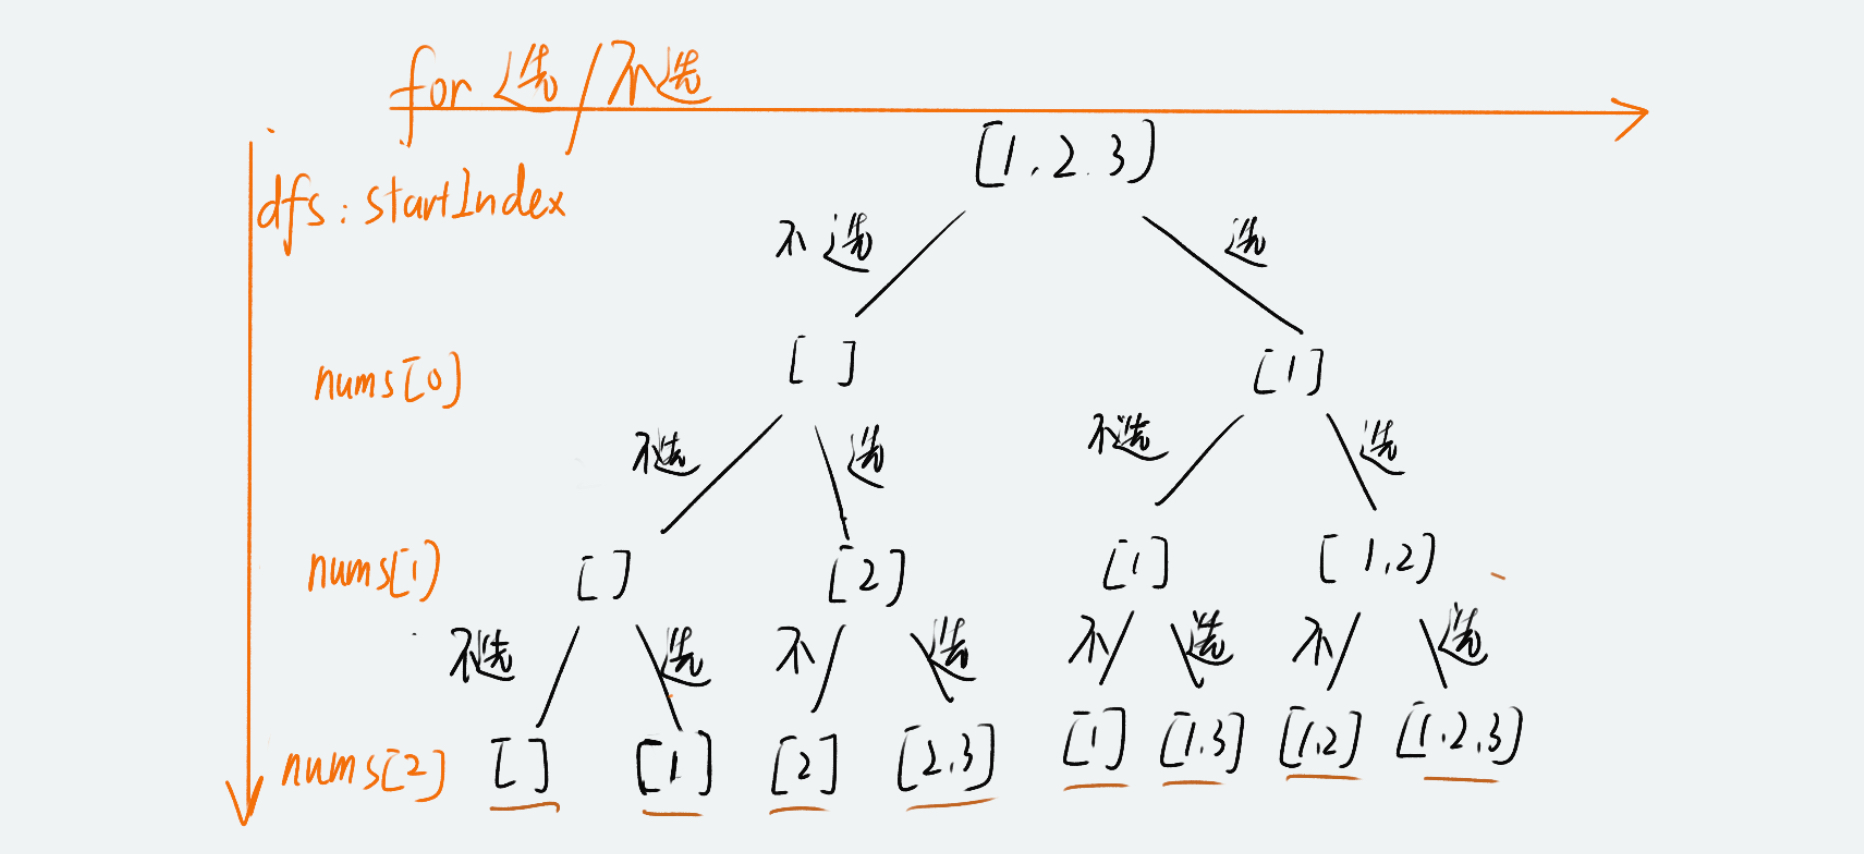 for 选/不选
[1,2.3]
dfs: startIndex
不选 选
nums[0] [ ] [1]
不选 选 不选 选
nums[1] [] [2] [1] [1,2]
不选 选 不 选 不 选 不 选
nums[2] [] [1] [2] [2,3] [1] [1,3] [1,2] [1,2,3]